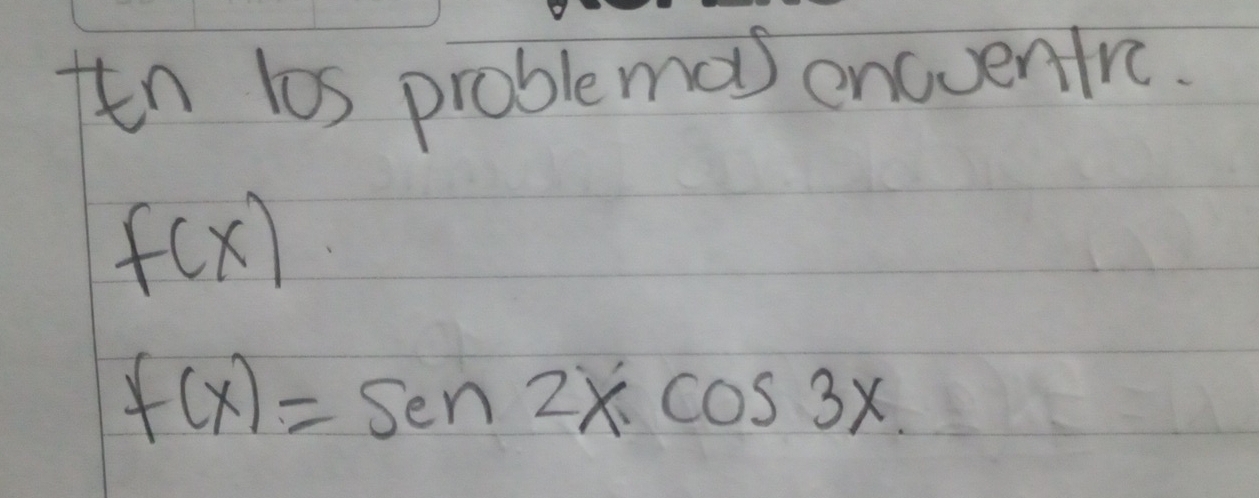 En los problemas encuentre.
f(x).
f(x) = Sen 2x cos 3x.